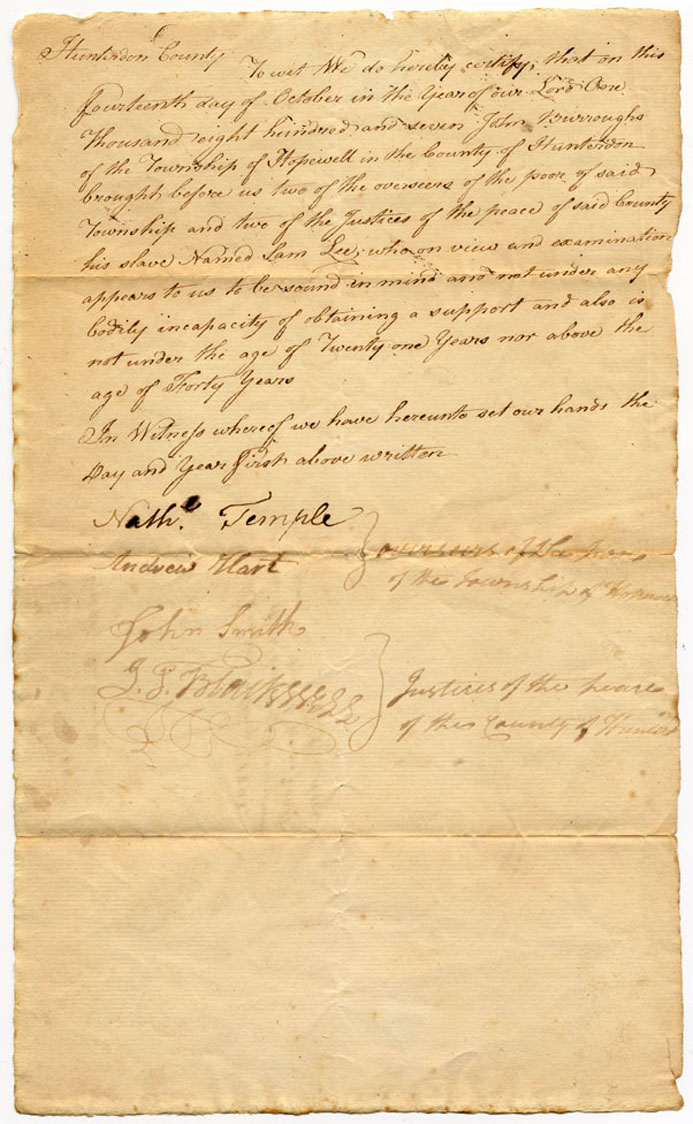 Hunterdon County
To wit We do hereby certify, that on this
fourteenth day of October in the Year of our Lord One
Thousand eight hundred and seven John Burroughs
of the Township of Hopewell in the County of Hunterdon
brought before us two of the overseers of the poor of said
Township and two of the Justices of the peace of said County
his slave Named Sam Lee, who on view and examination
appears to us to be sound in mind and not under any
bodily incapacity of obtaining a support and also is
not under the age of Twenty one Years nor above the
age of Forty Years
In Witness whereof we have hereunto set our hands the
Day and Year first above written
Nathl. Temple
Andrew Hart
overseers of the poor
of the Township of
John Smith
Justices of the peace
of the County of